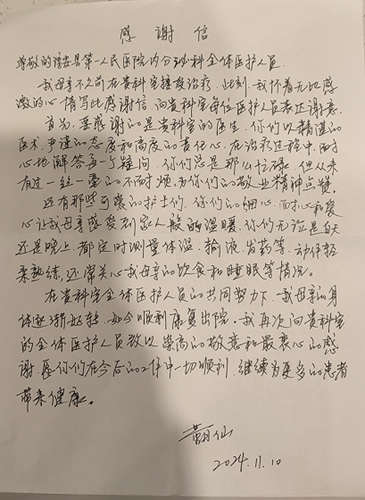 感谢信
尊敬的隆安县第一人民医院内分泌科全体医护人员
我母亲不久前在贵科室接受治疗,此刻,我怀着无比感
激的心情写此感谢信,向贵科室每位医护人员表达谢意。
首先,要感谢的是贵科室的医生,你们以精湛的
医术,严谨的态度和高度的责任心,在治疗过程中,耐
心地解答每个疑问,你们总是那么忙碌,但从未
有过一丝一毫的不耐烦,为你们的敬业精神点赞。
还有那些可爱的护士们,你们的细心,耐心和爱
心让我母亲感受到家人般的温暖,你们无论是白天
还是晚上,都定时测量体温,输液,发药等,动作轻
柔熟练,还常关心我母亲的饮食和睡眠等情况。
在贵科室全体医护人员的共同努力下,我母亲的身
体逐渐好转,如今顺利康复出院。我再次向贵科室
的全体医护人员致以崇高的敬意和最衷心的感
谢,愿你们在今后的工作中一切顺利,继续为更多的患者
带来健康。
仙
2024.11.10